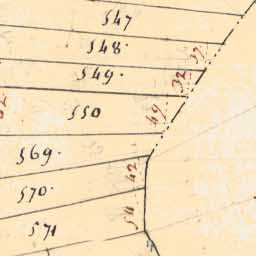 547
548.
37
549.
32
550
49
569.
42
570.
54
571